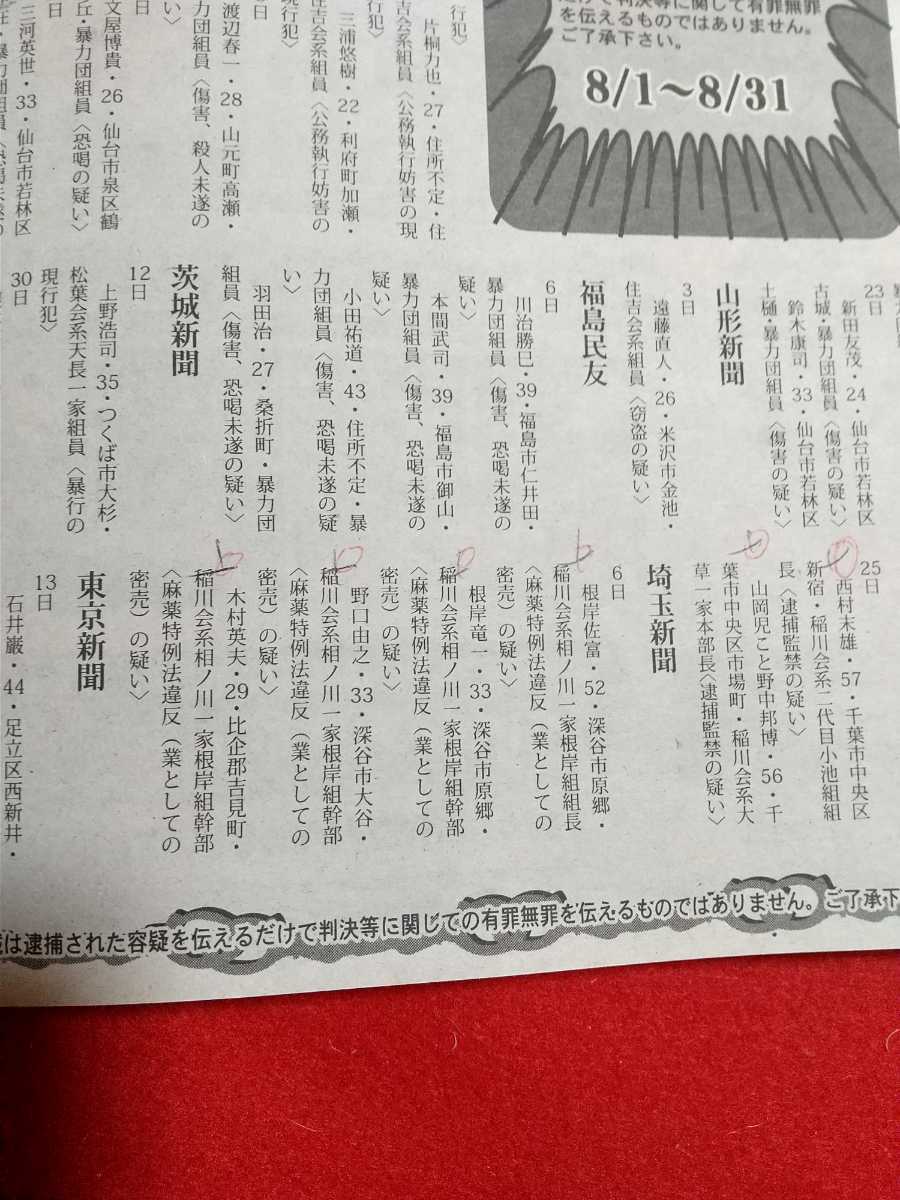 だけで判決等に関して有罪無罪
を伝えるものではありません。
ご了承下さい。
8/1〜8/31
行犯〉
片桐力也・27・住所不定・住
吉会系組員〈公務執行妨害の現
行犯〉
三浦悠樹・22・利府町加瀬・
住吉会系組員〈公務執行妨害の
現行犯〉
渡辺春一・28・山元町高瀬・
暴力団組員〈傷害、殺人未遂の
疑い〉
文屋博貴・26・仙台市泉区鶴
丘・暴力団組員〈恐喝の疑い〉
三河英世・33・仙台市若林区
23日
新田友茂・24・仙台市若林区
古城・暴力団組員〈傷害の疑い〉
鈴木康司・33・仙台市若林区
土樋・暴力団組員〈傷害の疑い〉
山形新聞
3日
遠藤直人・26・米沢市金池・
住吉会系組員〈窃盗の疑い〉
福島民友
6日
川治勝巳・39・福島市仁井田・
暴力団組員〈傷害、恐喝未遂の
疑い〉
本間武司・39・福島市御山・
暴力団組員〈傷害、恐喝未遂の
疑い〉
小田祐道・43・住所不定・暴
力団組員〈傷害、恐喝未遂の疑
い〉
羽田治・27・桑折町・暴力団
組員〈傷害、恐喝未遂の疑い〉
茨城新聞
12日
上野浩司・35・つくば市大杉・
松葉会系天長一家組員〈暴行の
現行犯〉
30日
25日
西村末雄・57・千葉市中央区
新宿・稲川会系二代目小池組組
長〈逮捕監禁の疑い〉
山岡児こと野中邦博・56・千
葉市中央区市場町・稲川会系大
草一家本部長〈逮捕監禁の疑い〉
埼玉新聞
6日
根岸佐富・52・深谷市原郷・
稲川会系相ノ川一家根岸組組長
〈麻薬特例法違反（業としての
密売）の疑い〉
根岸竜一・33・深谷市原郷・
稲川会系相ノ川一家根岸組幹部
〈麻薬特例法違反（業としての
密売）の疑い〉
野口由之・33・深谷市大谷・
稲川会系相ノ川一家根岸組幹部
〈麻薬特例法違反（業としての
密売）の疑い〉
木村英夫・29・比企郡吉見町・
稲川会系相ノ川一家根岸組幹部
〈麻薬特例法違反（業としての
密売）の疑い〉
東京新聞
13日
石井巌・44・足立区西新井・
は逮捕された容疑を伝えるだけで判決等に関しての有罪無罪を伝えるものではありません。ご了承下